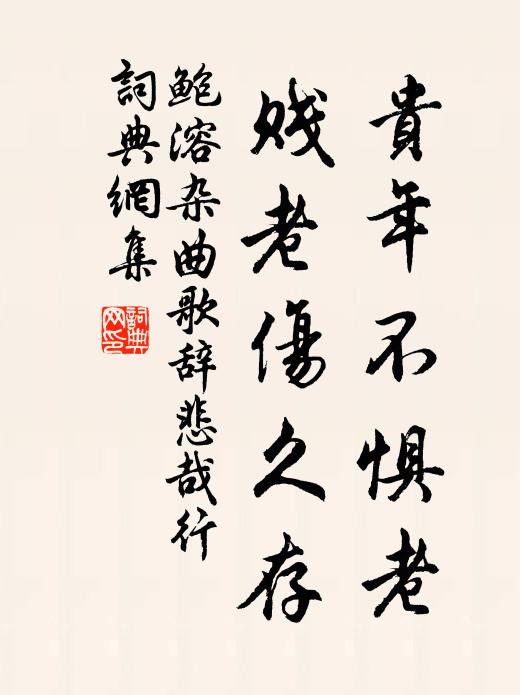 貴年不惧老
贱老傷久存
鲍溶杂曲歌辞悲哉行
詞典網集
詞典网印